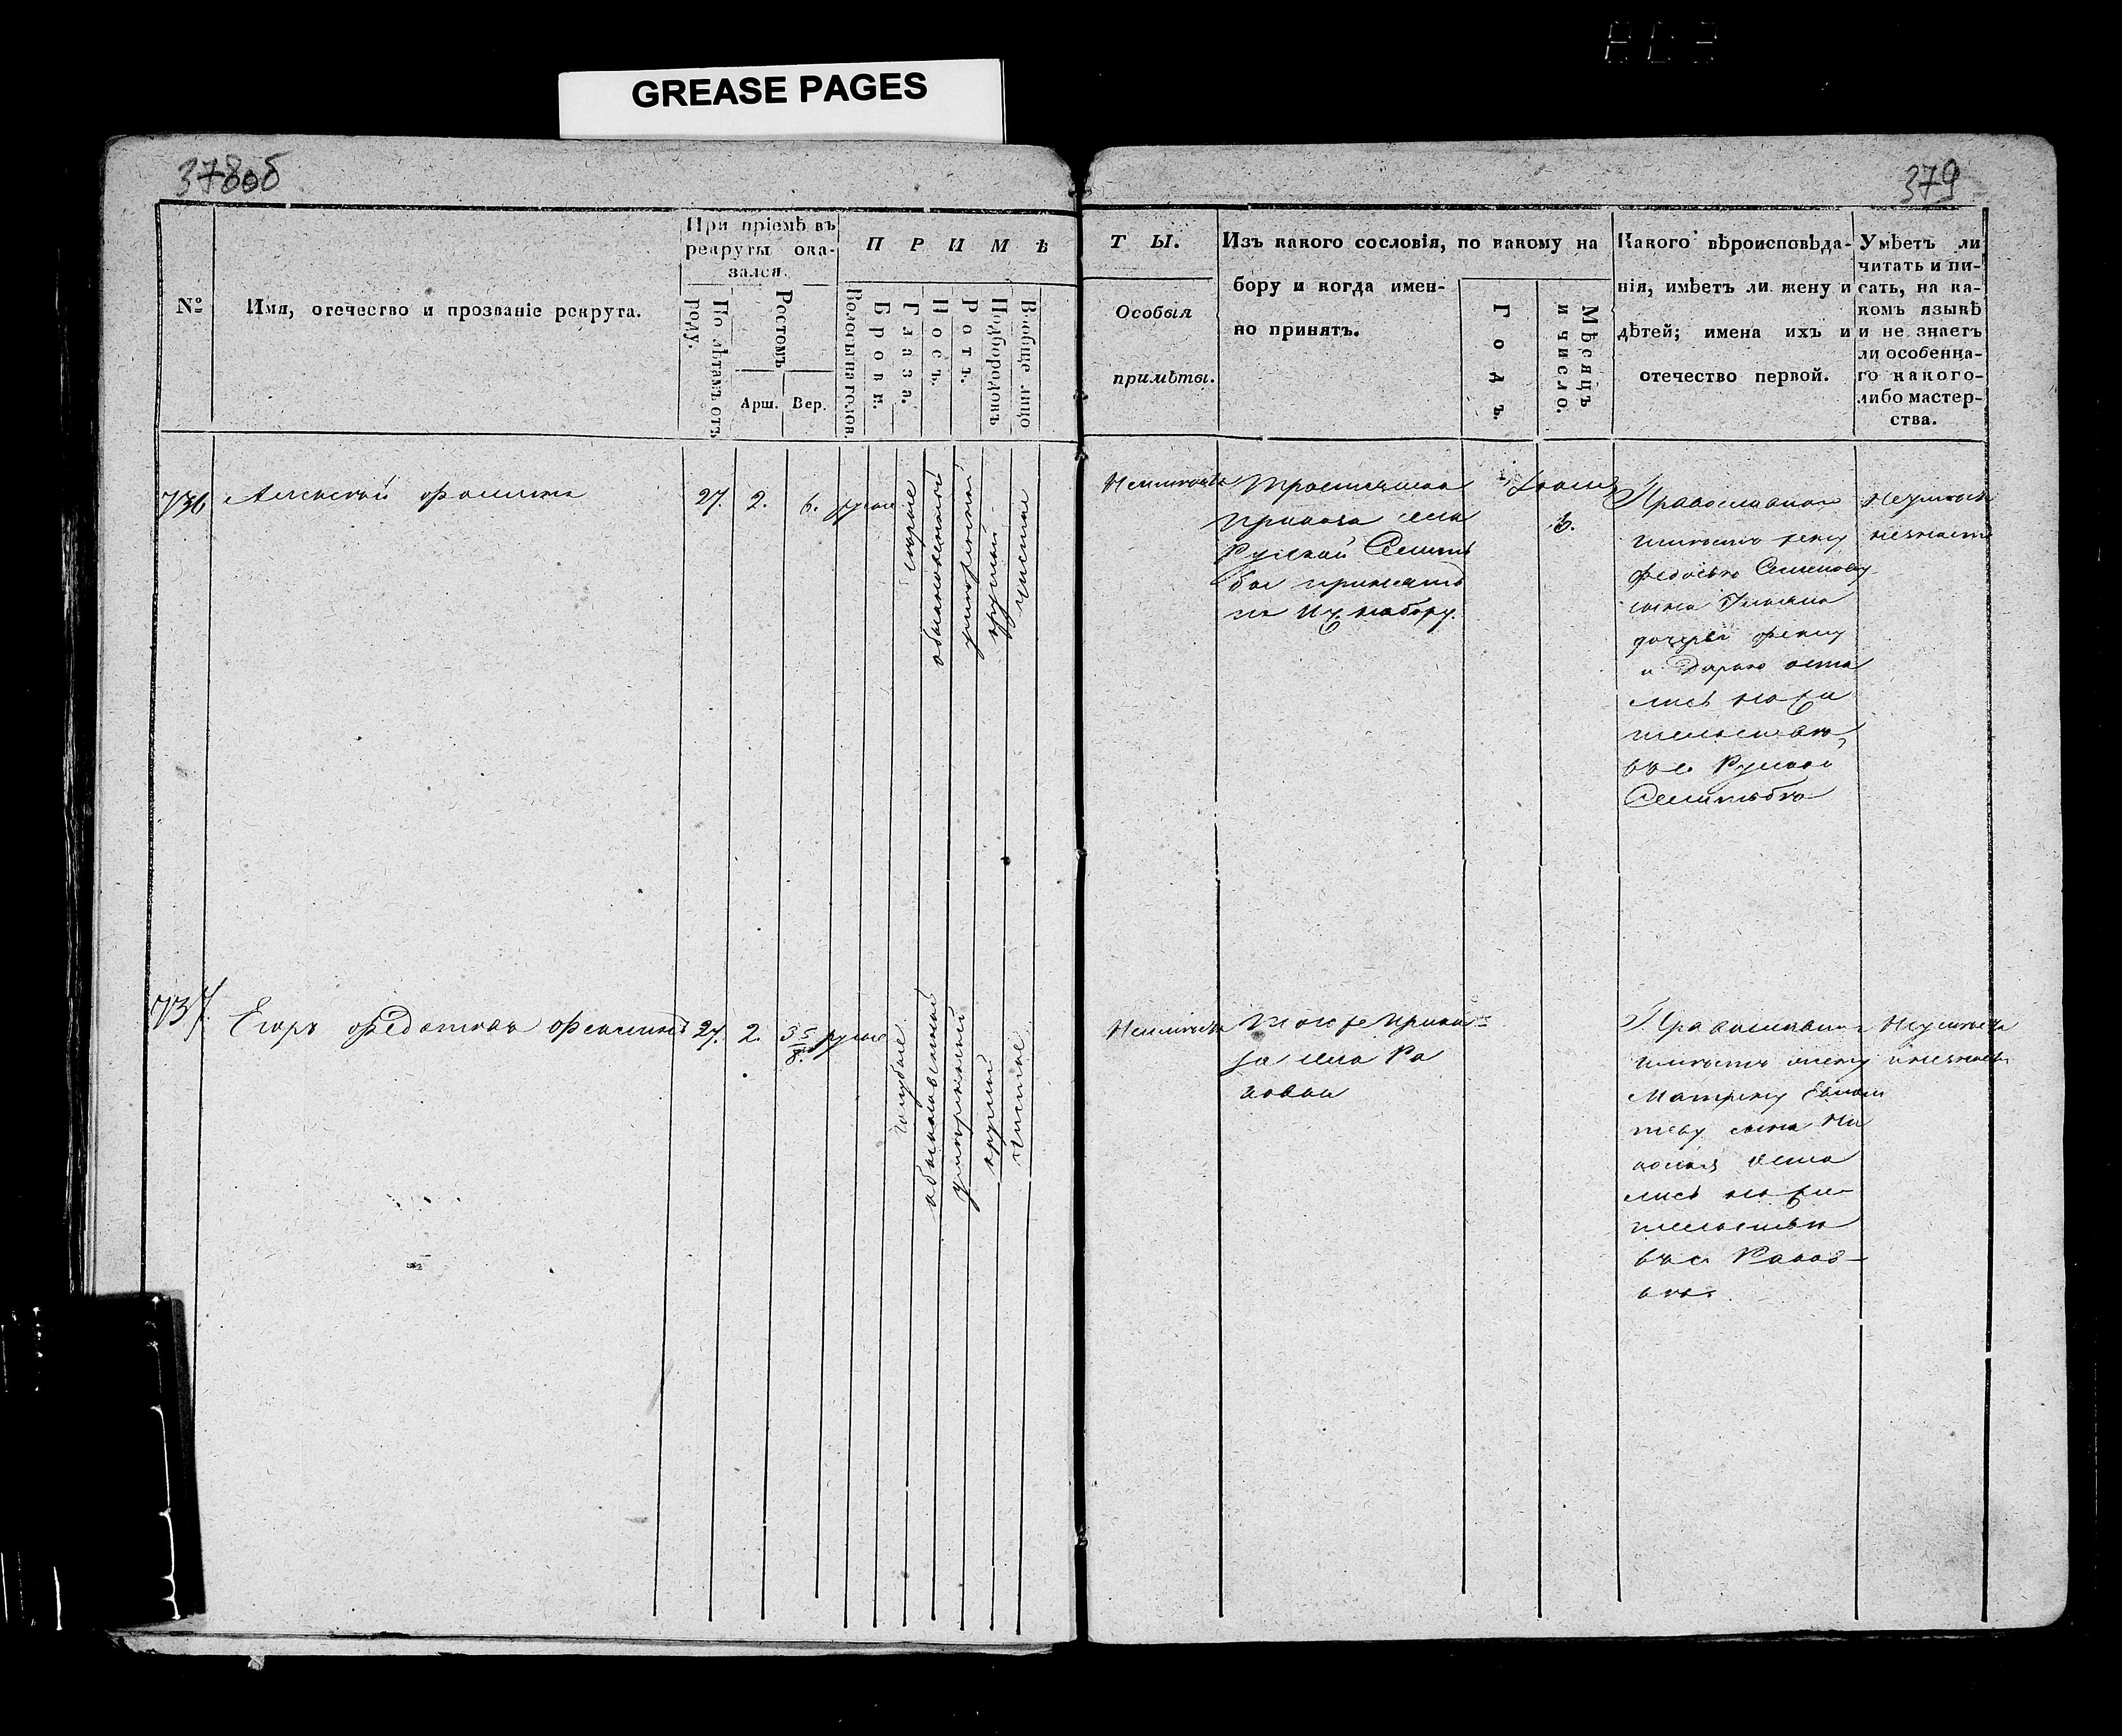 GREASE PAGES
378об
379
№
Имя, отечество и прозваніе рекрута.
При пріемѣ въ
рекруты ока-
зался.
По лѣтамъ отъ
роду.
Ростомъ
Арш. Вер.
ПРИМѢ
Волосы на голов.
Брови.
Глаза.
Носъ.
Ротъ.
Подбородокъ
Вообще лицо
ТЫ.
Особыя
примѣты.
Изъ какого сословія, по какому на
бору и когда имен-
но принятъ.
Годъ.
Мѣсяцъ
и число.
Какого вѣроисповѣда-
нія, имѣетъ ли жену и
дѣтей; имена ихъ и
отечество первой.
Умѣетъ ли
читать и пи-
сать, на ка-
комъ языкѣ
и не знаетъ
ли особенна-
го какого-
либо мастер-
ства.
736
Алексей Фоминъ
27. 2. 6. русые
серые
обыкновенный
умеренной
круглый
чистое
Неимеетъ
приказа села
Руской Селить
бы принятъ
по набору.
6.
Православнаго
имеетъ жену
Федосью Семенову
сына
дочерей
и Дарью оста
лись на жи
тельстве
въ с. Руской
Селитьбе
неумеетъ
незнаетъ
737
Егоръ Федотовъ
27. 2. 3 5/8. русые
голубые
обыкновенный
умеренный
круглый
чистое
Неимеетъ
того же прика
за села Ра
ковки
Православнаго
имеетъ жену
Матрену
сына Ни
колая оста
лись на жи
тельстве
въ с. Раков-
ке.
Неумеетъ
и незнаетъ